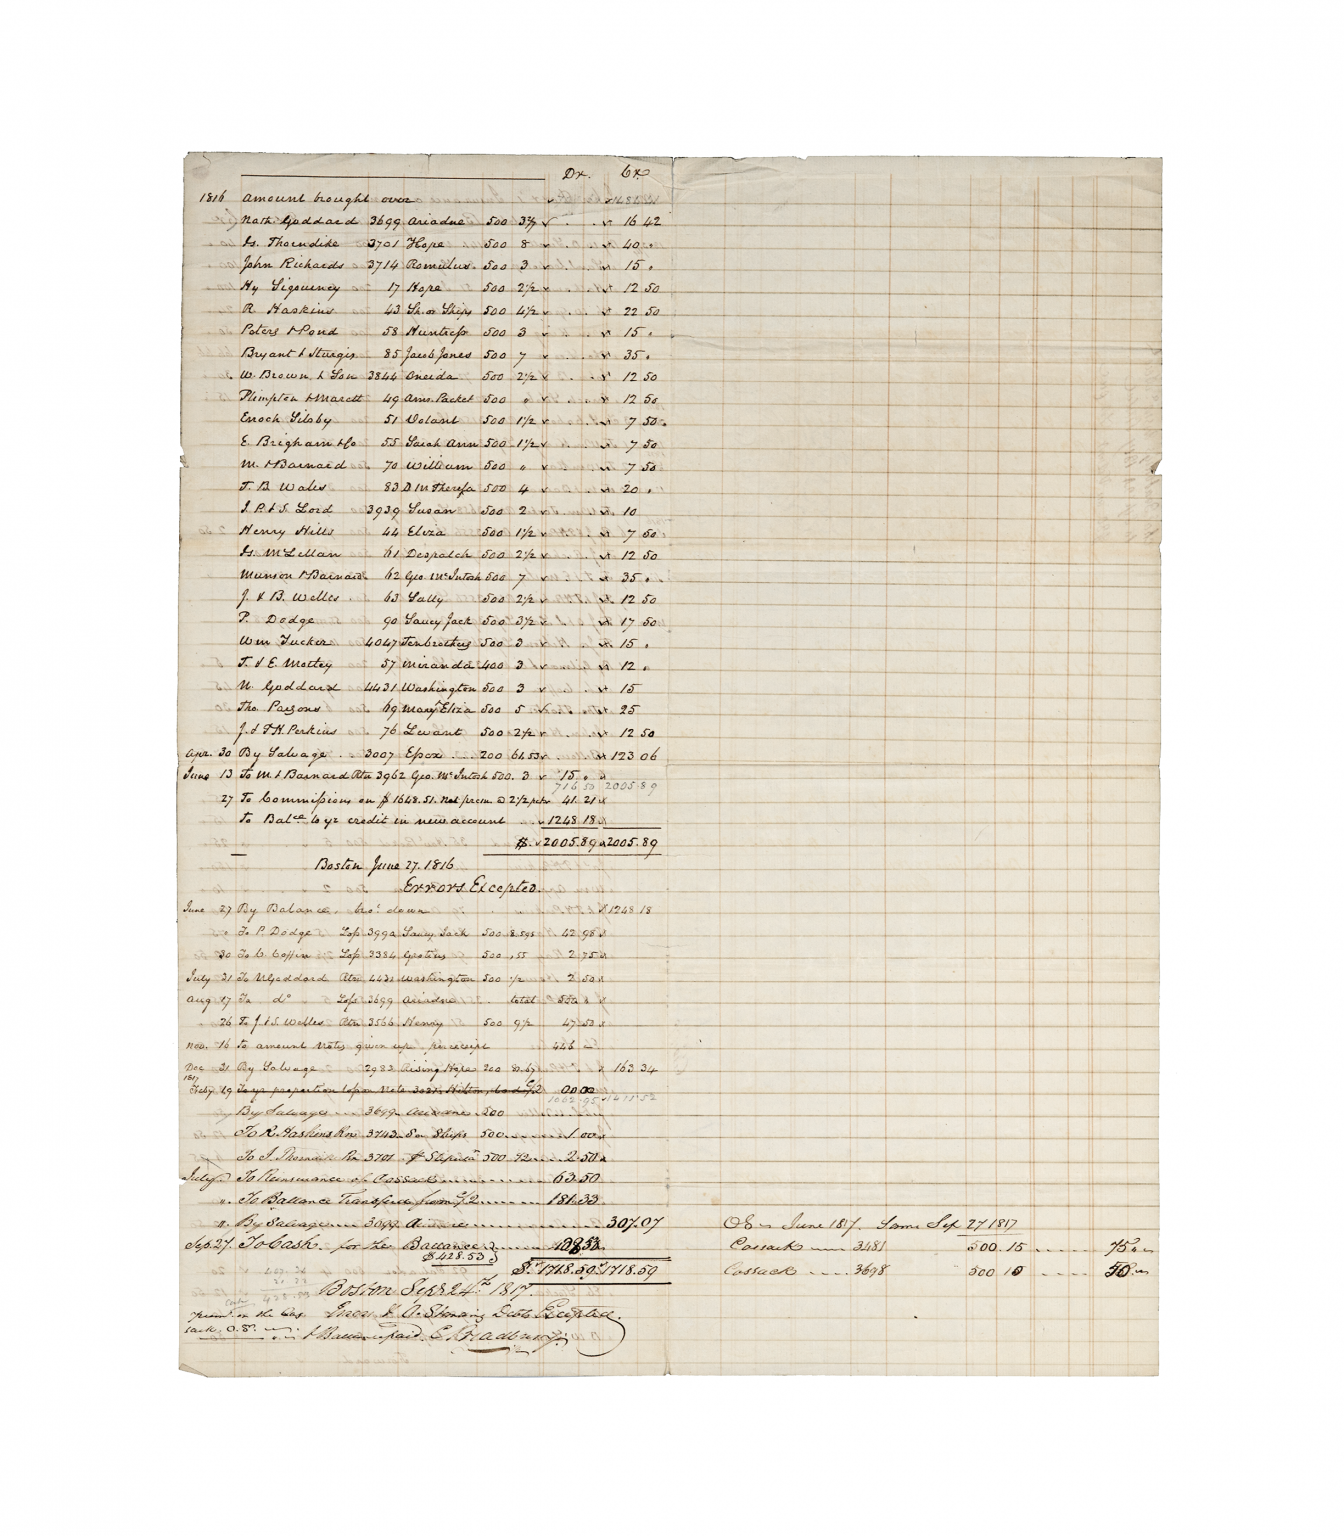 Dr. Cr
1816 Amount brought over
Nath Goddard 3699 Ariadne 500 3 16 42
Is. Thorndike 3701 Hope 500 8 40 "
John Richards 3714 Romulus 500 3 15 "
Hy Sigourney 17 Hope 500 2½ 12 50
R Haskins 43 Sh. or Ships 500 4½ 22 50
Peters & Pond 58 Huntress 500 3 15 "
Bryant & Sturgis 85 Jacob Jones 500 7 35 "
W. Brown & Son 3844 Oneida 500 2½ 12 50
Plimpton & Marett 49 Ams. Packet 500 " 12 50
Enoch Silsby 51 Volant 500 1½ 7 50
E. Brigham & Co 55 Sarah Ann 500 1½ 7 50
M. & Barnard 70 William 500 " 7 50
T. B Wales 83 D M Theresa 500 4 20 "
I. P. & S. Lord 3939 Susan 500 2 10
Henry Hills 44 Eliza 500 1½ 7 50
Is. McLellan 61 Despatch 500 2½ 12 50
Munson & Barnard 62 Geo. McIntosh 500 7 35 "
J. & B. Welles 63 Sally 500 2½ 12 50
P. Dodge 90 Saucy Jack 500 3½ 17 50
Wm Tucker 4047 Tenbrothers 500 3 15 "
T. & E. Mottey 57 Miranda 400 3 12 "
N. Goddard 4431 Washington 500 3 15
Tho. Parsons 69 Mary Eliza 500 5 25
J. & T. H. Perkins 76 Levant 500 2½ 12 50
Apr. 30 By Salvage 3007 Essex 200 61.53 123 06
June 13 To M & Barnard Rtn 3962 Geo. McIntosh 500. 3 15 "
716 50 2005.89
27 To Commissions on $1648.51. Net prem @ 2½ pct 41.21
To Balce to yr credit in new account 1248 18
$ 2005.89 2005.89
Boston June 27. 1816
Errors Excepted.
June 27 By Balance, bro't down $1248 18
" To P. Dodge Loss 3990 Saucy Jack 500 8.595 42 98
30 To C Coffin Loss 3384 Grotius 500 .55 2 75
July 31 To N Goddard Rtn 4431 Washington 500 ½ 2 50
Aug 17 To do Loss 3699 Ariadne total 500
26 To J & S. Welles Rtn 3566 Henry 500 9½ 47.50
Nov. 16 To amount Notes given up per receipt 446 –
Dec 31 By Salvage 2983 Rising Hope 200 81.67 163 34
1817
Feby 19 To yr proportion loss on Note 3021. Hilton, 00 00
1411.52
By Salvage 3699 Ariadne 500
To R. Haskins Rn 3743 Sn Ships 500 1.00
To I. Thorndike Rn 3701 500 ½ 2.50
July To Reinsurance of Cossack 63.50
" To Ballance Transferd from C/2 181.33
" By Salvage 3699 A 307.07
Sep. 27. To Cash for the Ballance
$428.53
$ 1718.59 $1718.59
Boston Sepr 24th 1817.
Errors & Excepted.
& Ballance paid. C. Bradbury
OS June 1817. Some Sep 27 1817
Cossack 3481 500.15 75
Cossack 3698 500 10 50